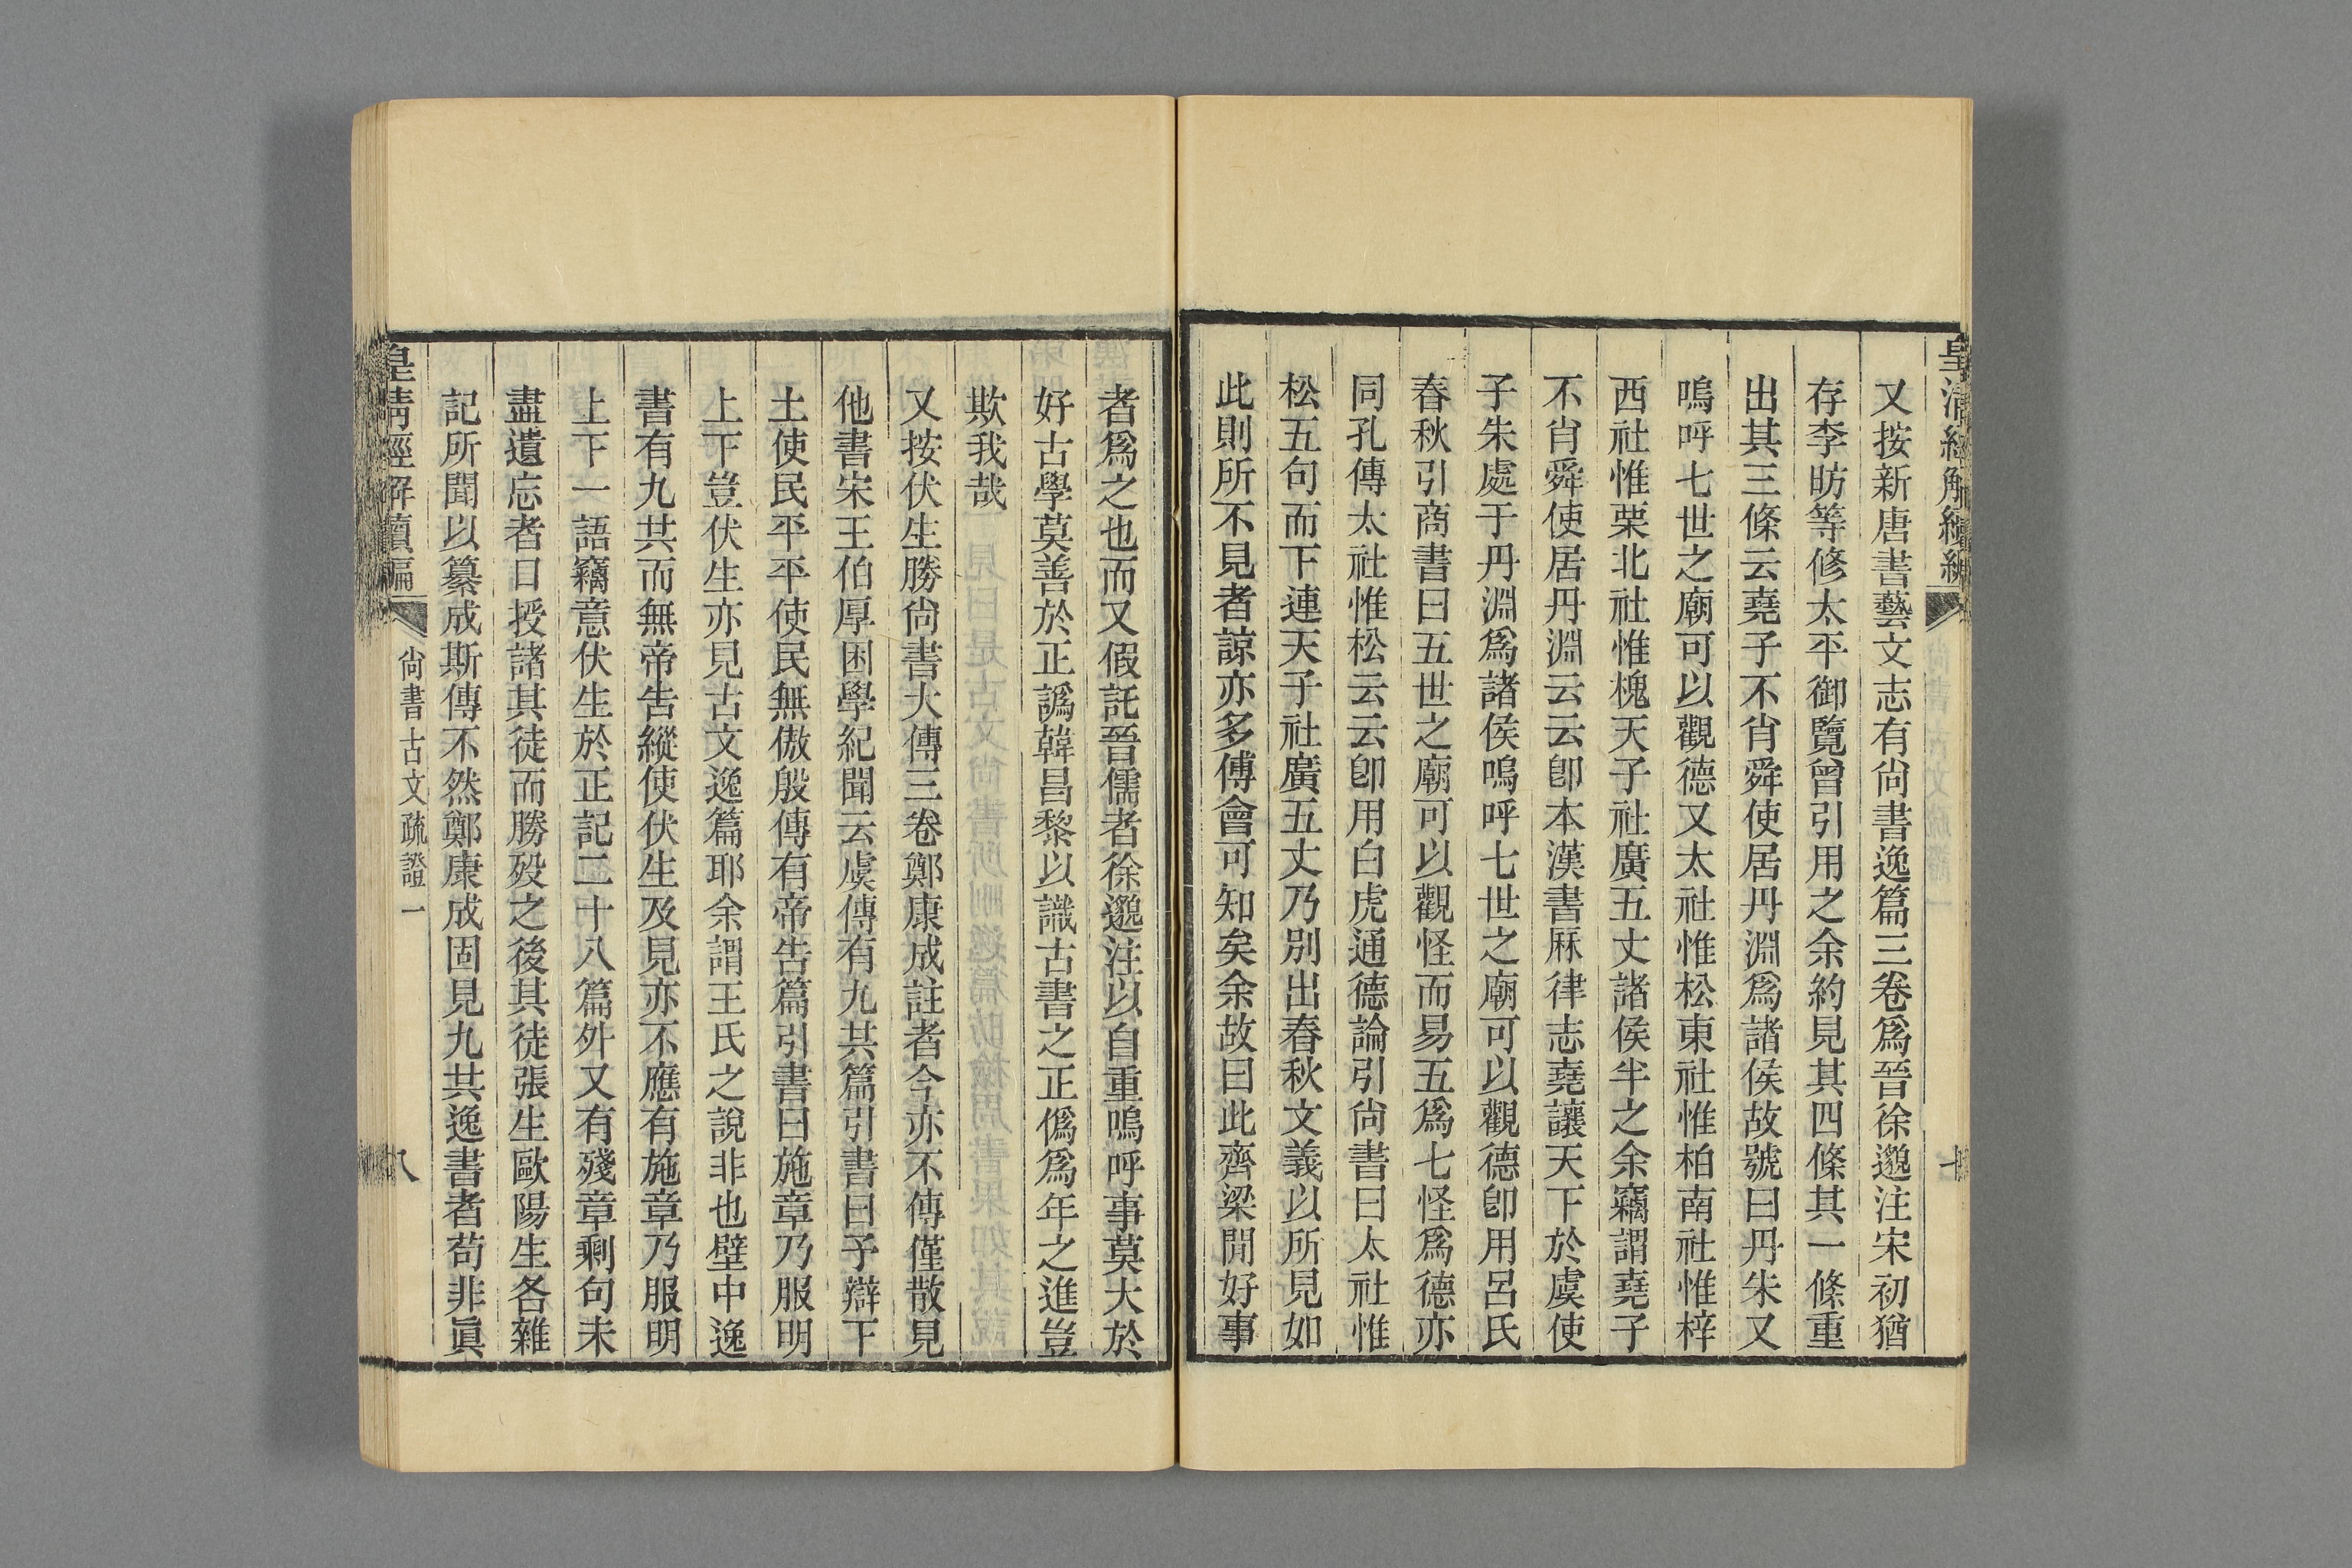 皇清經解續編
又按新唐書藝文志有尙書逸篇三卷爲晉徐邈注宋初猶
存李昉等修太平御覽曾引用之余約見其四條其一條重
出其三條云堯子不肖舜使居丹淵爲諸侯故號曰丹朱又
嗚呼七世之廟可以觀德又太社惟松東社惟柏南社惟梓
西社惟栗北社惟槐天子社廣五丈諸侯半之余竊謂堯子
不肖舜使居丹淵云云卽本漢書厤律志堯讓天下於虞使
子朱處于丹淵爲諸侯嗚呼七世之廟可以觀德卽用呂氏
春秋引商書曰五世之廟可以觀怪而易五爲七怪爲德亦
同孔傳太社惟松云云卽用白虎通德論引尙書曰太社惟
松五句而下連天子社廣五丈乃別出春秋文義以所見如
此則所不見者諒亦多傅會可知矣余故曰此齊梁閒好事
者爲之也而又假託晉儒者徐邈注以自重嗚呼事莫大於
好古學莫善於正譌韓昌黎以識古書之正僞爲年之進豈
欺我哉
又按伏生勝尙書大傳三卷鄭康成註者今亦不傳僅散見
他書宋王伯厚困學紀聞云虞傳有九共篇引書曰予辯下
土使民平平使民無傲殷傳有帝告篇引書曰施章乃服明
上下豈伏生亦見古文逸篇耶余謂王氏之說非也壁中逸
書有九共而無帝告縱使伏生及見亦不應有施章乃服明
上下一語竊意伏生於正記二十八篇外又有殘章剩句未
盡遺忘者口授諸其徒而勝歿之後其徒張生歐陽生各雜
記所聞以纂成斯傳不然鄭康成固見九共逸書者苟非眞
皇清經解續編 尙書古文疏證一 八